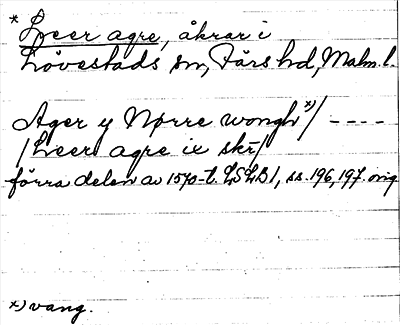 * Leer agre, åkrar i
Lövestads sn, Färs hd, Malm. l.
Ager y Nørre wongh *)/ ----
/Leer agre ix skr/
förra delen av 1570-t. LSLB1, ss. 196, 197. orig
*) vang.